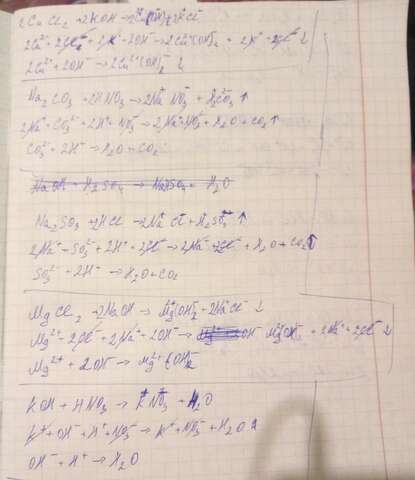 2CuCl₂ + 2KOH → 2Cu(OH)₂ + 2KCl
2Cu²⁺ + 2Cl⁻ + 2K⁺ + 2OH⁻ → 2Cu²⁺(OH)₂ + 2K⁺ + 2Cl⁻ ↓
2Cu²⁺ + 2OH⁻ → 2Cu²⁺(OH)₂⁻ ↓
Na₂CO₃ + 2HNO₃ → 2Na⁺NO₃⁻ + H₂CO₃ ↑
2Na⁺ + CO₃²⁻ + 2H⁺ + NO₃⁻ → 2Na⁺ + NO₃⁻ + H₂O + CO₂ ↑
CO₃²⁻ + 2H⁺ → H₂O + CO₂
NaOH + H₂SO₄ → NaHSO₄ + H₂O
Na₂SO₃ + 2HCl → 2Na⁺Cl⁻ + H₂SO₃ ↑
2Na⁺ + SO₃²⁻ + 2H⁺ + 2Cl⁻ → 2Na⁺ + 2Cl⁻ + H₂O + CO₂ ↑
SO₃²⁻ + 2H⁺ → H₂O + CO₂
MgCl₂ + 2NaOH → Mg⁺(OH)₂⁻ + 2Na⁺Cl⁻ ↓
Mg²⁺ + 2Cl⁻ + 2Na⁺ + 2OH⁻ → Mg²⁺(OH)₂⁻ + 2Na⁺ + 2Cl⁻ ↓
Mg²⁺ + 2OH⁻ → Mg²⁺(OH)₂⁻
KOH + HNO₃ → K⁺NO₃⁻ + H₂O
K⁺ + OH⁻ + H⁺ + NO₃⁻ → K⁺ + NO₃⁻ + H₂O
OH⁻ + H⁺ → H₂O